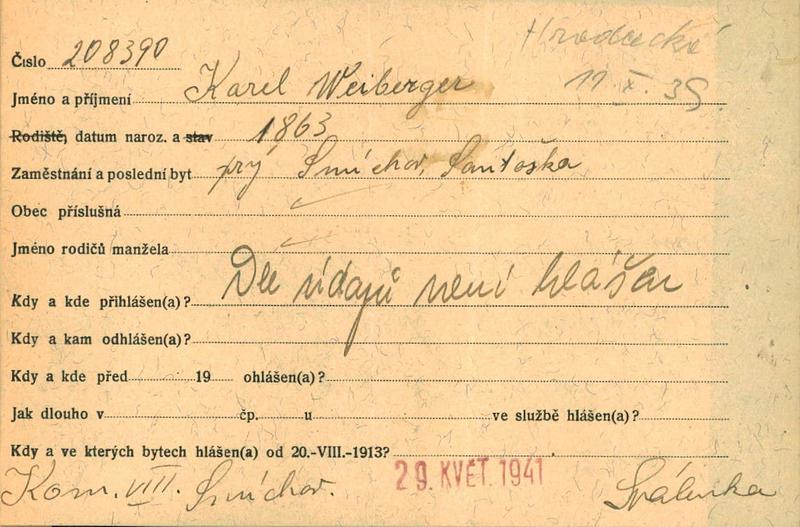 Hradecká
11 X. 35
Číslo 208390
Jméno a příjmení Karel Weiberger
Rodiště, datum naroz. a stav 1863
Zaměstnání a poslední byt prý Smíchov, Santoška
Obec příslušná
Jméno rodičů manžela
Kdy a kde přihlášen(a)? Dle údajů není hlášen
Kdy a kam odhlášen(a)?
Kdy a kde před 19 ohlášen(a)?
Jak dlouho v čp. u ve službě hlášen(a)?
Kdy a ve kterých bytech hlášen(a) od 20.-VIII.-1913?
29. KVĚT. 1941
Kom. VIII. Smíchov.